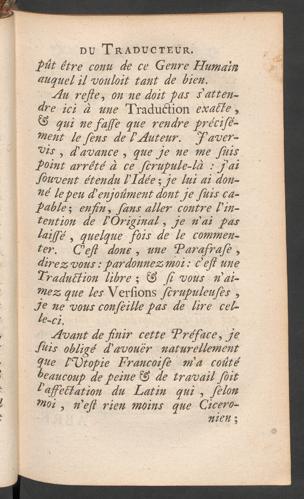 DU TRADUCTEUR.
pût être conu de ce Genre Humain
auquel il vouloit tant de bien.
Au reſte, on ne doit pas s'atten-
dre ici à une Traduction exacte,
& qui ne faſſe que rendre préciſé-
ment le ſens de l'Auteur. J'aver-
vis, d'avance, que je ne me ſuis
point arrêté à ce ſcrupule-là : j'ai
ſouvent étendu l'Idée; je lui ai don-
né le peu d'enjoûment dont je ſuis ca-
pable; enfin, ſans aller contre l'in-
tention de l'Original, je n'ai pas
laiſſé, quelque fois de le commen-
ter. C'eſt donc, une Parafraſe,
direz vous : pardonnez moi : c'eſt une
Traduction libre; & ſi vous n'ai-
mez que les Verſions ſcrupuleuſes,
je ne vous conſeille pas de lire cel-
le-ci.
Avant de finir cette Préface, je
ſuis obligé d'avouër naturellement
que l'Utopie Francoiſe m'a coûté
beaucoup de peine & de travail ſoit
l'affectation du Latin qui, ſelon
moi, n'eſt rien moins que Cicero-
nien;